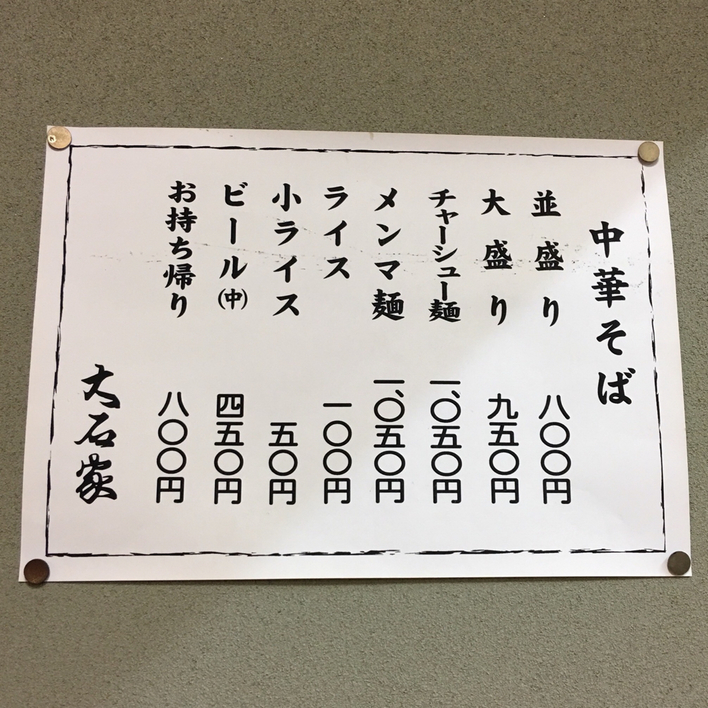 中華そば
並盛り 八〇〇円
大盛り 九五〇円
チャーシュー麺 一、〇五〇円
メンマ麺 一、〇五〇円
ライス 一〇〇円
小ライス 五〇円
ビール(中) 四五〇円
お持ち帰り 八〇〇円
大石家